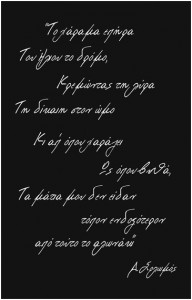 "Το χάραμα επήρα
Του Ήλιου το δρόμο,
Κρεμώντας τη λύρα
Τη δίκαιη στον ώμο
Κι απ' όπου χαράζει
Ως όπου βυθά,
Τα μάτια μου δεν είδαν
τόπον ενδοξότερον
από τούτο το αλωνάκι"
Δ. Σολωμός